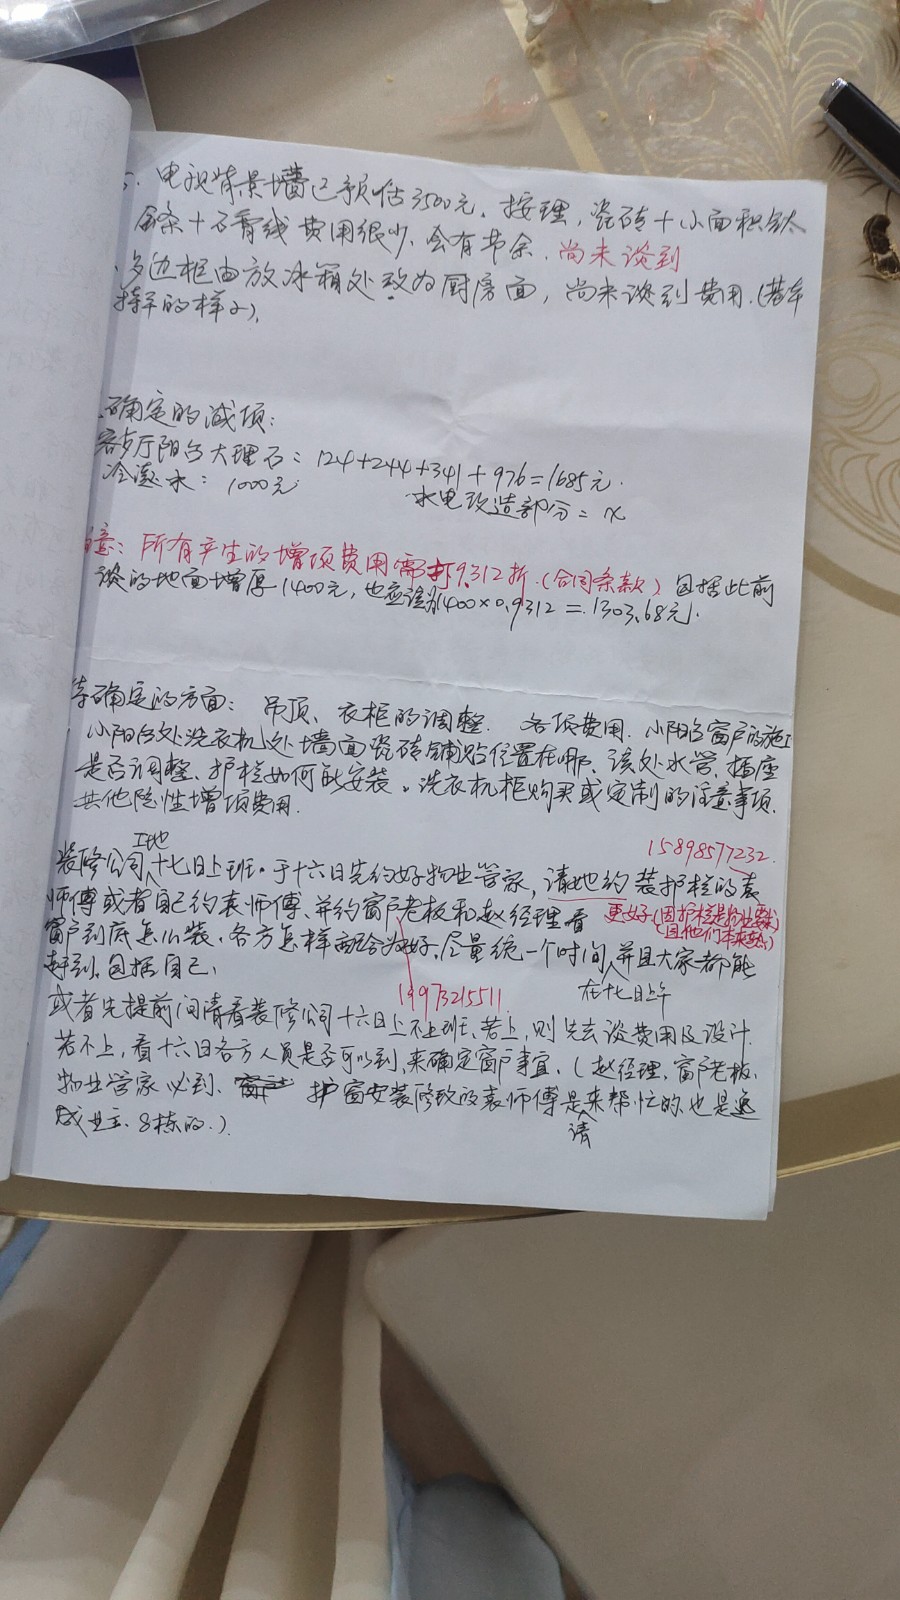 5、电视背景墙已预估3500元。按理，瓷砖+小面积钛
金条+石膏线费用很少，会有节余．尚未谈到
、多边柜由放冰箱处改为厨房面，尚未谈到费用．(
样的样子)．
确定的减项：
客厅阳台大理石：124+244+341+976=1685元．
冷凝水：1000元
水电改造部分=x
意：所有产生的增项费用需打9.312折．(合同条款)
包括此前
谈的地面增厚1400元，也应该为1400×0.9312=1303.68元．
待确定的方面：吊顶、衣柜的调整．各项费用．小阳台窗户的施工
小阳台处洗衣机处墙面瓷砖铺贴位置在哪、该处水管、插座
是否调整、护栏如何能安装。洗衣机柜购买或定制的注意事项．
其他隐性增项费用．
工地
装修公司十七日上班。于十六日先约好物业管家，请她约装护栏的袁
15898577232
师傅或者自己约袁师傅、并约窗户老板和赵经理看
更好(因护栏是物业要求)
(因他们本来熟)
窗户到底怎么装、各方怎样配合为好．尽量统一个时间，并且大家都能
赶到．包括自己．
在十七日上午
13973215511
或者先提前问清看装修公司十六日上不上班．若上，则先去谈费用及设计．
若不上，看十六日各方人员是否可以到，来确定窗户事宜．(赵经理、窗户老板、
物业管家必到、护窗安装修改的袁师傅是来帮忙的，也是逸
请
成业主．8栋的．)